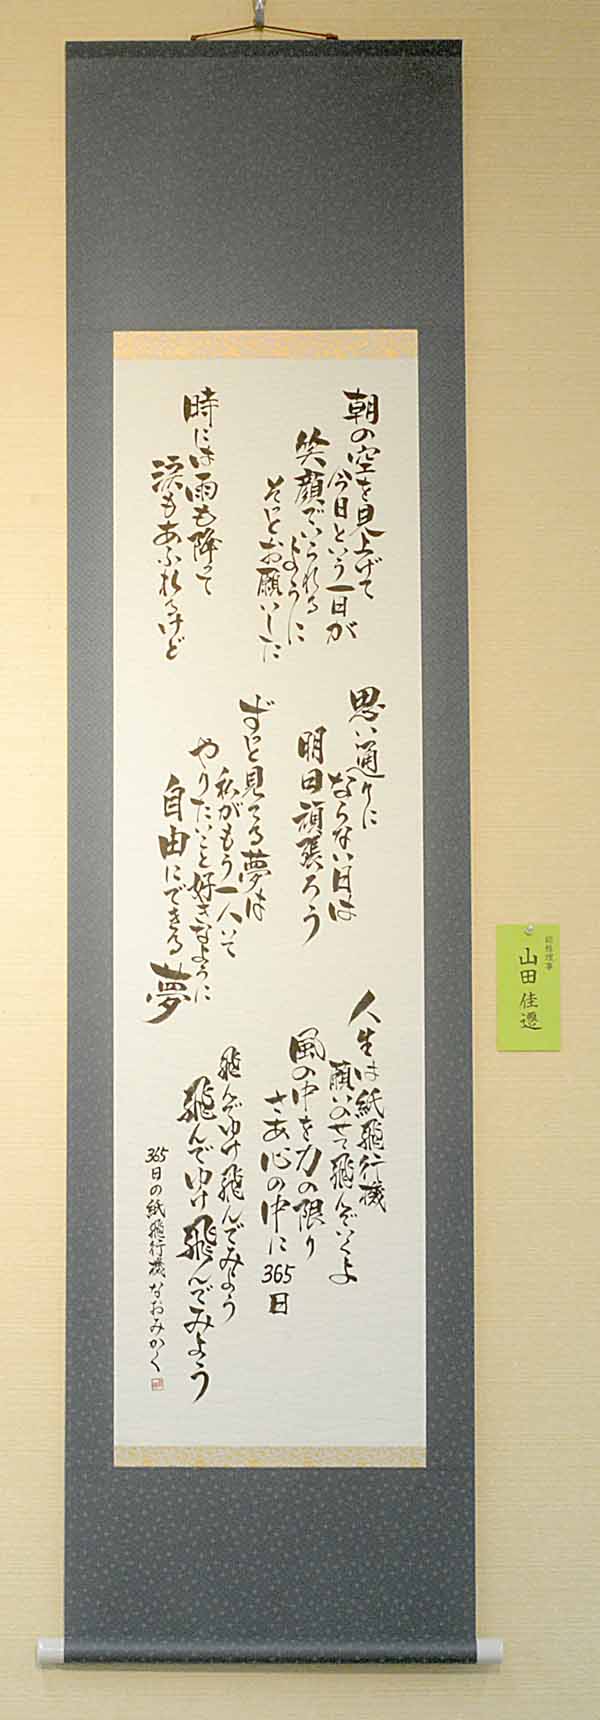 朝の空を見上げて
今日という一日が
笑顔でいられる
ように
そっとお願いした
時には雨も降って
涙もあふれるけど
思い通りに
ならない日は
明日頑張ろう
ずっと見てる夢は
私がもう一人いて
やりたいこと好きなように
自由にできる夢
人生は紙飛行機
願いのせて飛んでいくよ
風の中を力の限り
さあ心の中に365日
飛んでゆけ飛んでみよう
飛んでゆけ飛んでみよう
365日の紙飛行機 なおみかく
山田佳遷